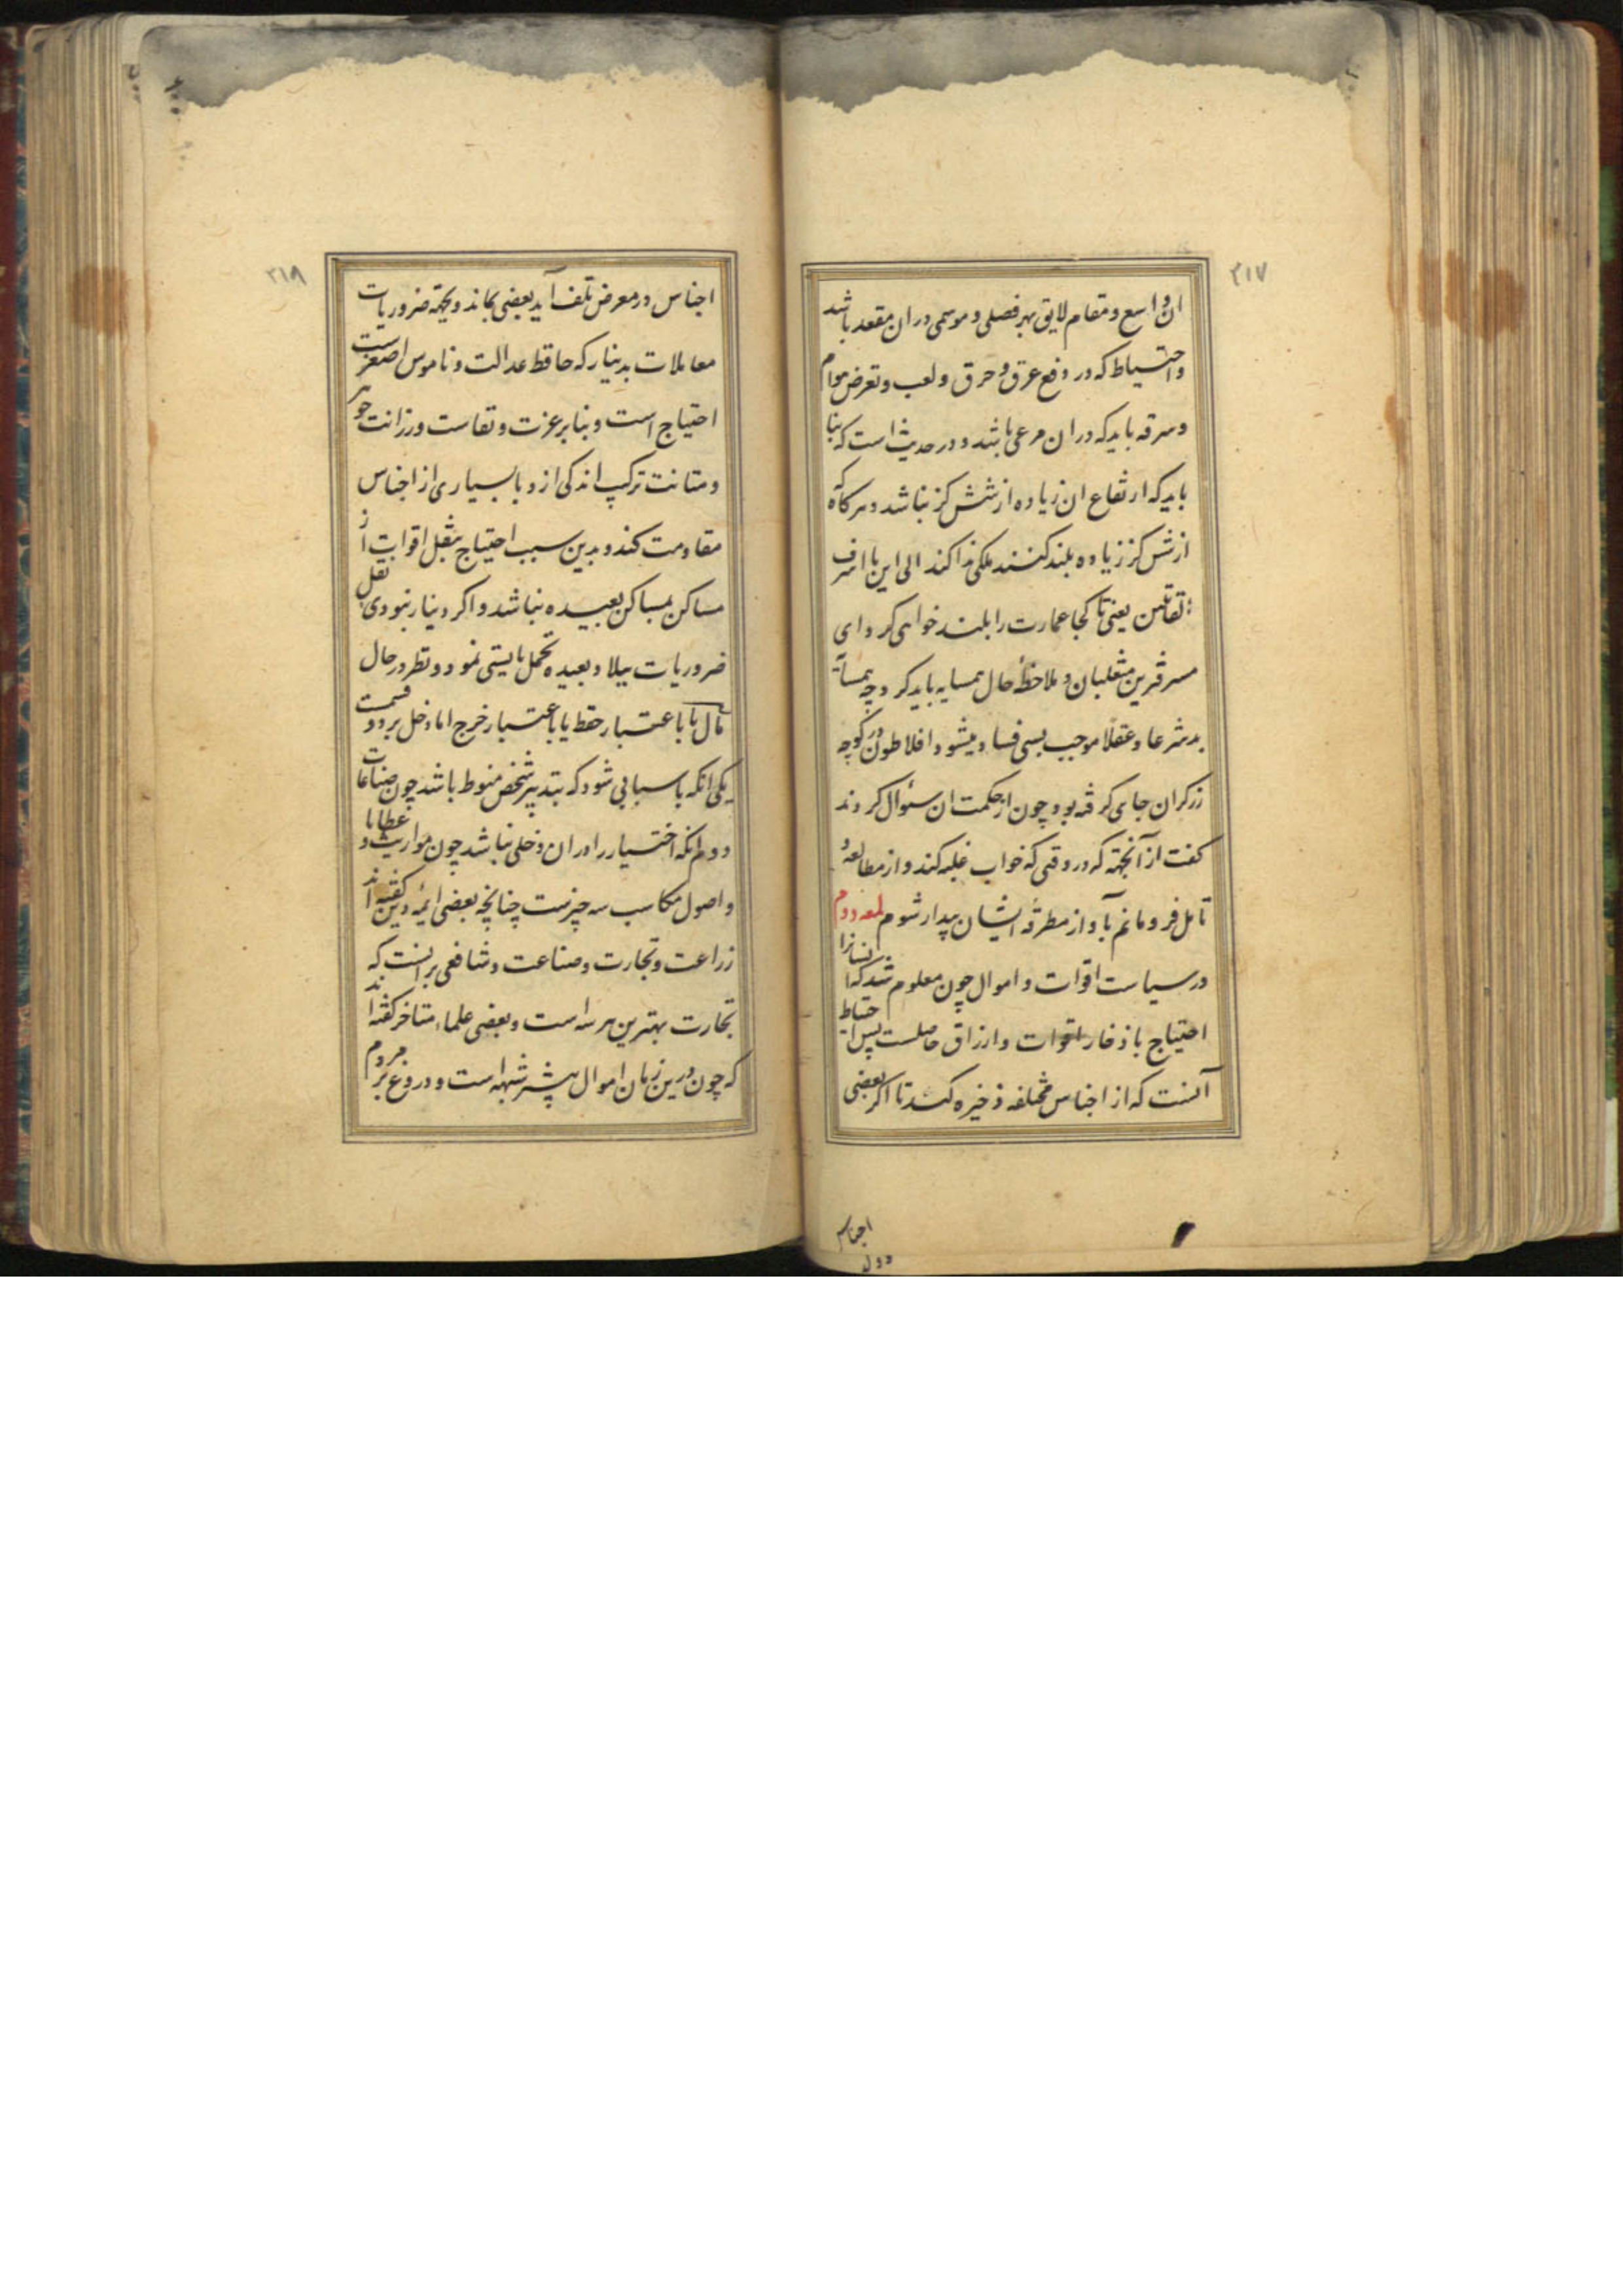 ۲۱۷
ان واسع و مقام لایق بهر فصلی و موسمی در ان مقعد باشد
واحتیاط که در دفع غرق و حرق و لعب و تعرض هوام
و سرقه باید که دران مرعی باشد و در حدیث است که بنا
باید که ارتفاع ان زیاده از شش کز نباشد و هرکاه که
از شش کز زیاده بلند کنند ملکی ندا کند الی این یا اسرف
تقائلین یعنی تا کجا عمارت را بلند خواهی کرد ای
مسرفترین متقلبان و ملاحظهٔ حال همسایه باید کرد چه همسایهٔ
بد شرعا و عقلا موجب بسی فساد میشود و افلاطون در کوچه
زرکران جای کرفته بود چون از حکمت ان سئوال کردند
کفت از آنجهته که در وقتی که خواب غلبه کند و از مطالعه و
تامل فرو مانم بآواز مطرقهٔ ایشان بیدار شوم لمعه دوم
در سیاست اقوات و اموال چون معلوم شد که انسانرا
احتیاج باذخار اقوات و ارزاق حاصلست پس احتیاط
آنست که از اجناس مختلفه ذخیره کنند تا اکر بعضی
اجناس
۲۱۸
اجناس در معرض تلف آید بعضی بماند و بجهة ضروریات
معاملات بدینار که حافظ عدالت و ناموس اصغرست
احتیاج است و بنا بر عزت و نفاست و رزانت جوهر
و متانت ترکیب اندکی ازو با بسیاری از اجناس
مقاومت کند و بدین سبب احتیاج بنقل اقوات از
مساکن بمساکن بعیده نباشد و اکر دینار نبودی نقل
ضروریات ببلاد بعیده تحمل بایستی نمود و نظر در حال
مال یا باعتبار حفظ یا باعتبار خرج اما دخل بر دو قسمت
یکی انکه باسبابی شود که بتدبیر شخص منوط باشد چون صناعات
دوم انکه اختیار را دران دخلی نباشد چون مواریث و عطایا
و اصول مکاسب سه چیزست چنانچه بعضی ائمهٔ دین کفته اند
زراعت و تجارت و صناعت و شافعی بر انست که
تجارت بهترین هر سه است و بعضی علماء متاخر کفته اند
که چون درین زمان اموال بیشتر شبهه است و دروغ بر مردم